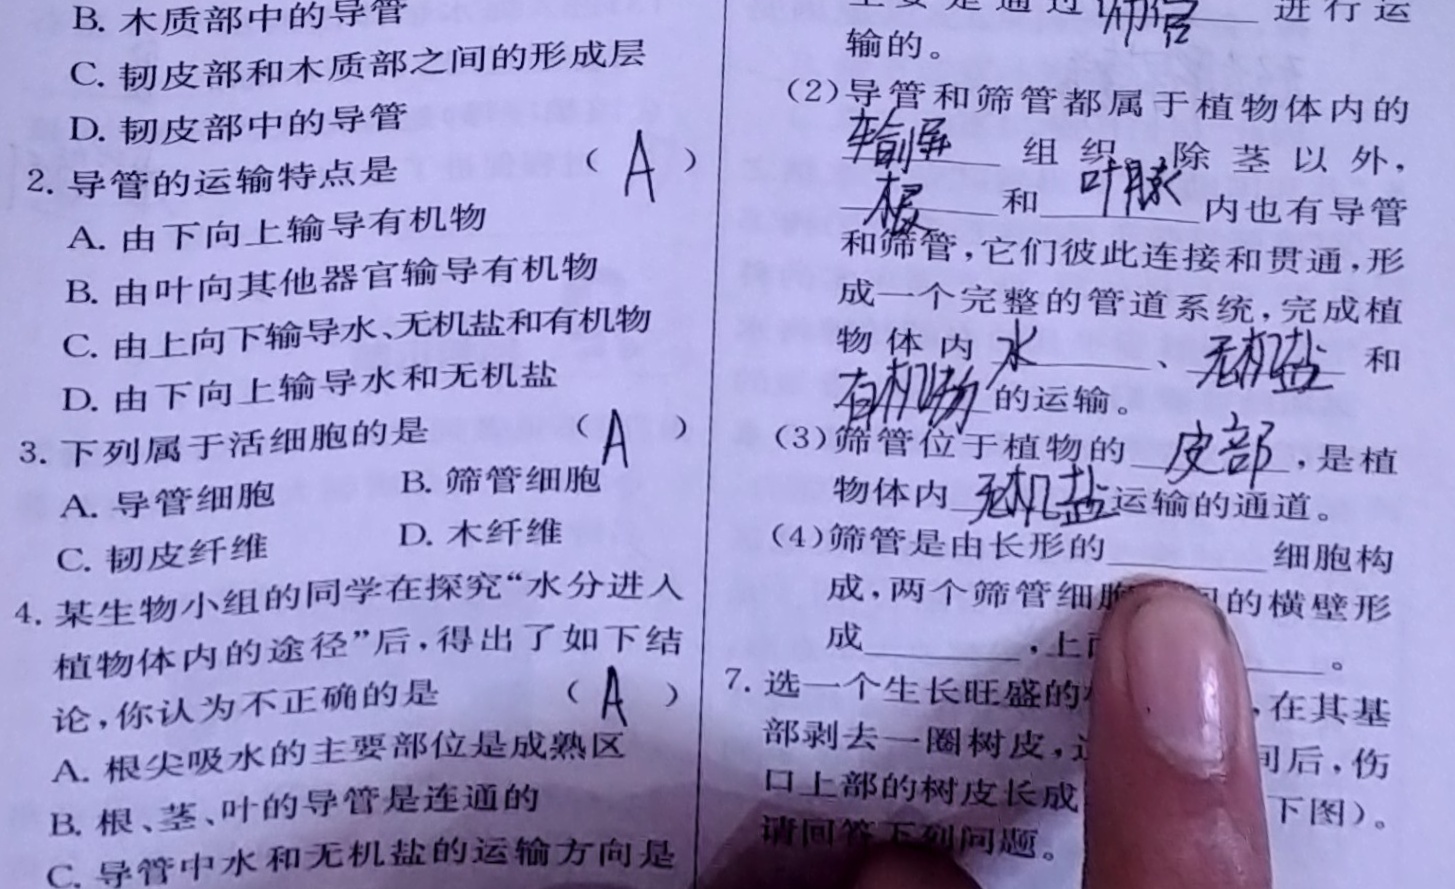 B. 木质部中的导管
C. 韧皮部和木质部之间的形成层
D. 韧皮部中的导管
2. 导管的运输特点是 ( A )
A. 由下向上输导有机物
B. 由叶向其他器官输导有机物
C. 由上向下输导水、无机盐和有机物
D. 由下向上输导水和无机盐
3. 下列属于活细胞的是 ( A )
A. 导管细胞 B. 筛管细胞
C. 韧皮纤维 D. 木纤维
4. 某生物小组的同学在探究“水分进入
植物体内的途径”后,得出了如下结
论,你认为不正确的是 ( A )
A. 根尖吸水的主要部位是成熟区
B. 根、茎、叶的导管是连通的
C. 导管中水和无机盐的运输方向是
主要是通过 筛管 进行运
输的。
(2)导管和筛管都属于植物体内的
组织。除茎以外,
根 和 叶脉 内也有导管
和筛管,它们彼此连接和贯通,形
成一个完整的管道系统,完成植
物体内 水 、 无机盐 和
有机物 的运输。
(3)筛管位于植物的 皮部 ,是植
物体内 无机盐 运输的通道。
(4)筛管是由长形的 细胞构
成,两个筛管细胞 的横壁形
成 ,上 。
7. 选一个生长旺盛的 ,在其基
部剥去一圈树皮, 间后,伤
口上部的树皮长成 下图)。
请回答下列问题。